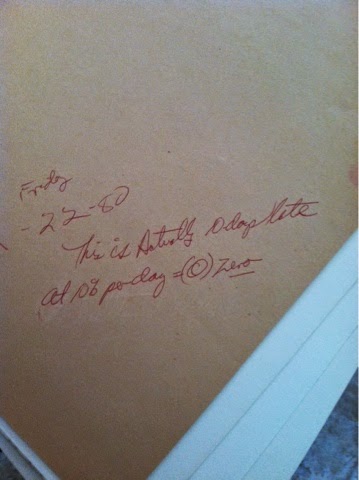 Friday
-22-80
This is Actually 10 days late
At 10% per day = (0) Zero